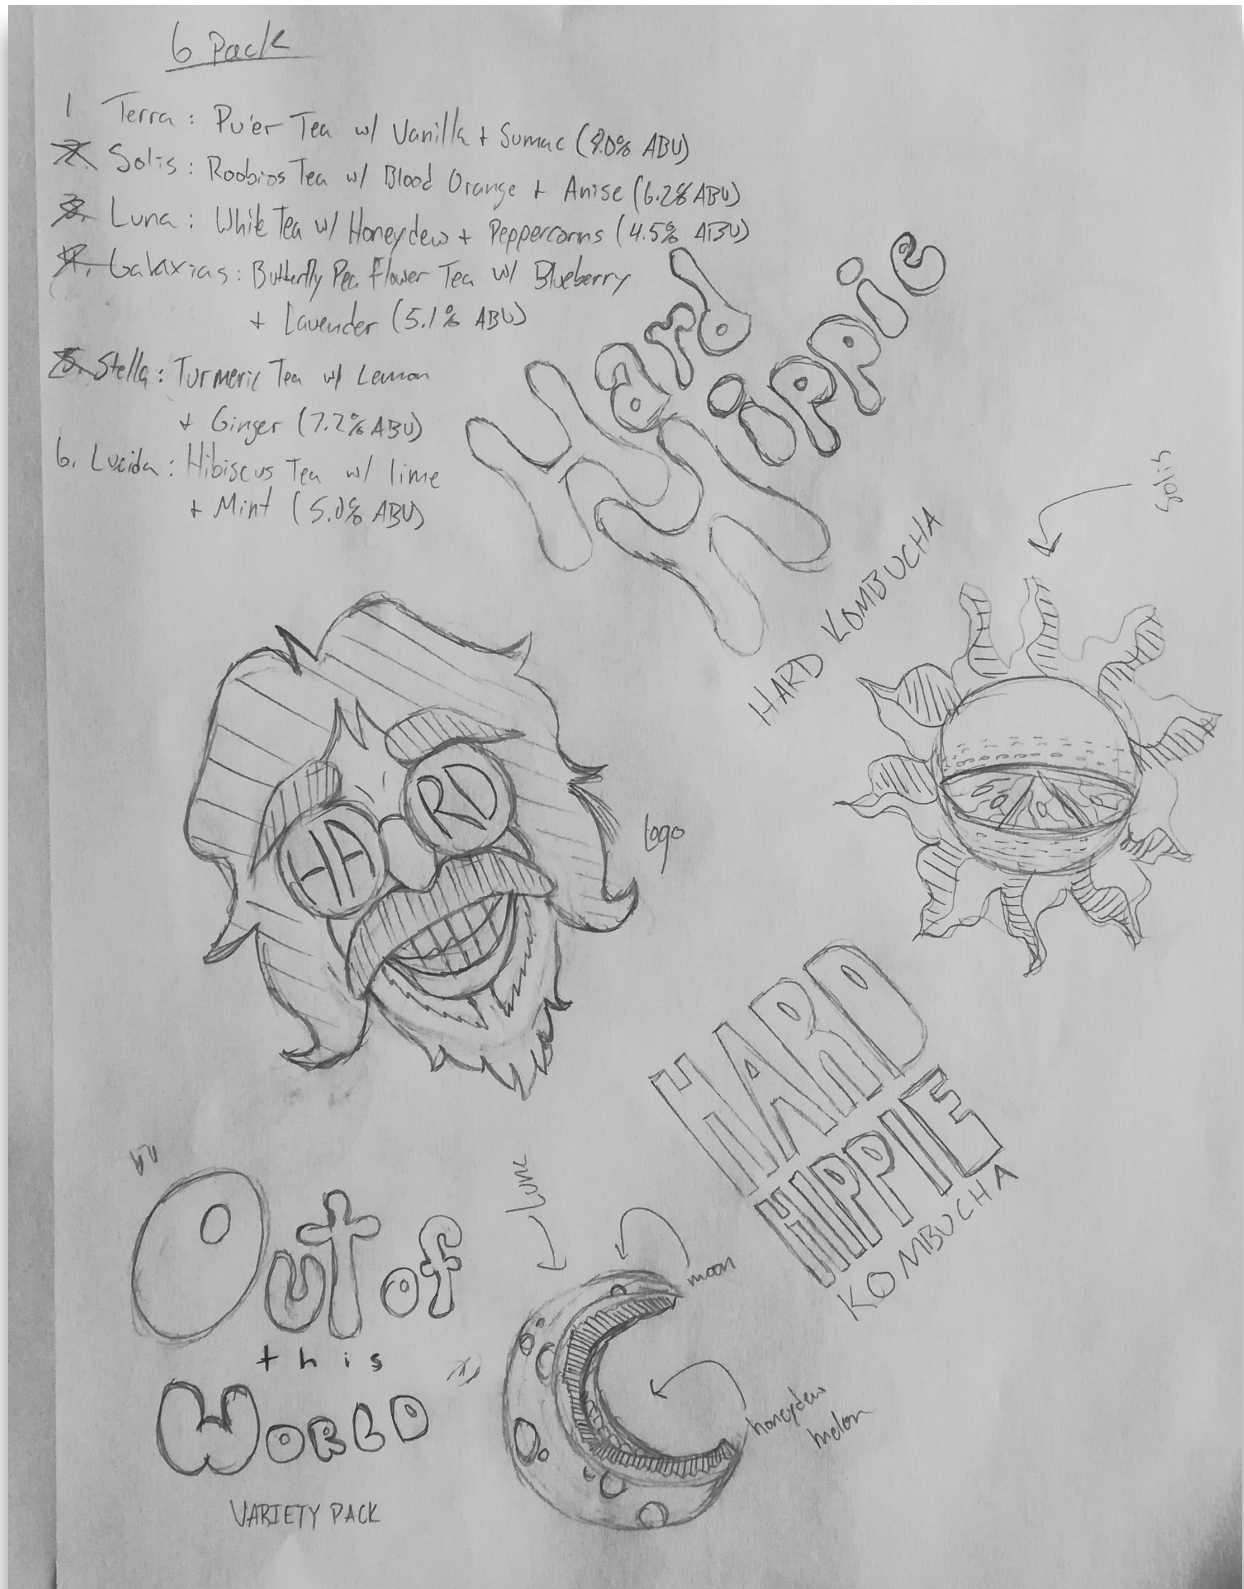 6 Pack
1 Terra: Pu'er Tea w/ Vanilla + Sumac (9.0% ABU)
2. Solis: Roobios Tea w/ Blood Orange + Anise (6.2% ABU)
3. Luna: White Tea w/ Honeydew + Peppercorns (4.5% ABU)
4. Galaxias: Butterfly Pea Flower Tea w/ Blueberry
+ Lavender (5.1% ABU)
5. Stella: Turmeric Tea w/ Lemon
+ Ginger (7.2% ABU)
6. Lucida: Hibiscus Tea w/ lime
+ Mint (5.0% ABU)
Hard
Hippie
HARD KOMBUCHA
Solis
HARD
Logo
HARD
HIPPIE
KOMBUCHA
Out of
this
WORLD
VARIETY PACK
Luna
moon
honeydew
melon